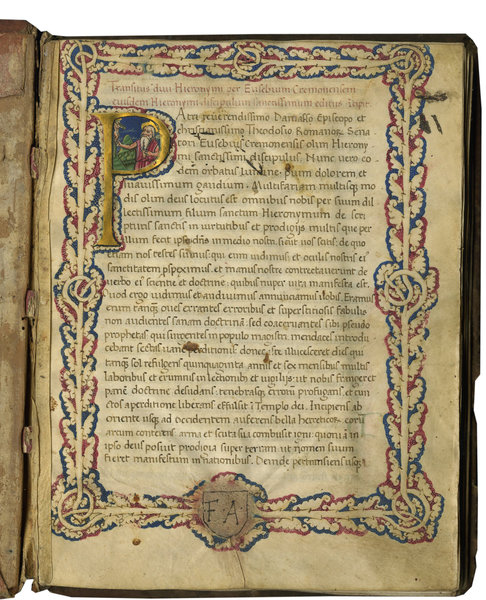 Transitus diui Hieronymi per Eusebium Cremonensem
eiusdem Hieronymi discipulum sanctissimum editus
PAtri reuerendissimo Damasso Episcopo et
christianissimo Theodosio Romanor Sena
tori Eusebius Cremonensis olim Hierony
mi sanctissimi discipulus Nunc uero eo
dem orbatus lumine pium dolorem et
suauissimum gaudium. Multifariam multisq mo
dis olim deus locutus est omnibus nobis per suum dil
lectissimum filium sanctum Hieronymum de scri
pturis sanctis in uirtutibus et prodigijs multis que per
illum fecit in medio nostri sicut uos scitis: de quo
etiam nos testes sumus. qui eum uidimus et oculis nostris ei
sanctitatem et manus nostre contrectauerunt de
uerbo ei scientie et doctrine. quibus nuper uita manifesta est.
quod ergo uidimus et audiuimus annuntiamus uobis. Eramus
enim oues errantes erroribus et superstitiosis fabulis
non audientes sanam doctrinam: sed coaceruantes sibi pseudo
prophetas qui surgentes in populo magistri mendaces introdu
cebant sectas perditionis donec illucesceret dies qui
sol refulgens quinquaginta annis et sex mensibus multis
laboribus et erumnis in lectionibus et uigilijs: ut nobis frangeret
panem doctrine desudans. tenebrasq errorum profugans. et cun
ctos a perditione liberans effulsit Templo dei. Incipiens ab
oriente usq ad occidentem auferens bella hereticor
arcum conterens arma et scuta sua combusit igni: quoniam in
ipso deus posuit prodigia super terram ut nomen suum
fieret manifestum in nationibus. Deinde pertransiens usq
F A